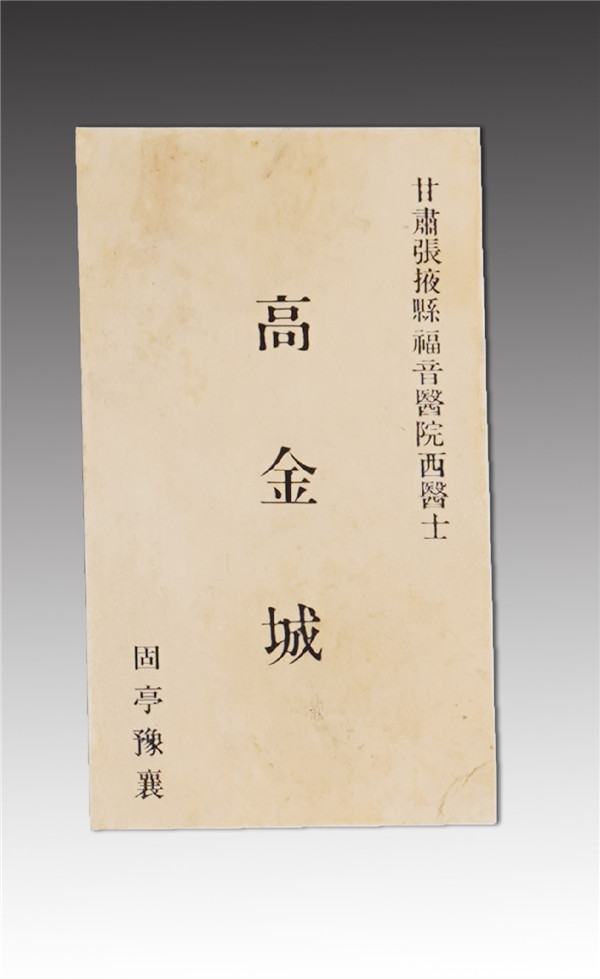 甘肅張掖縣福音醫院西醫士
高金城
固亭豫襄